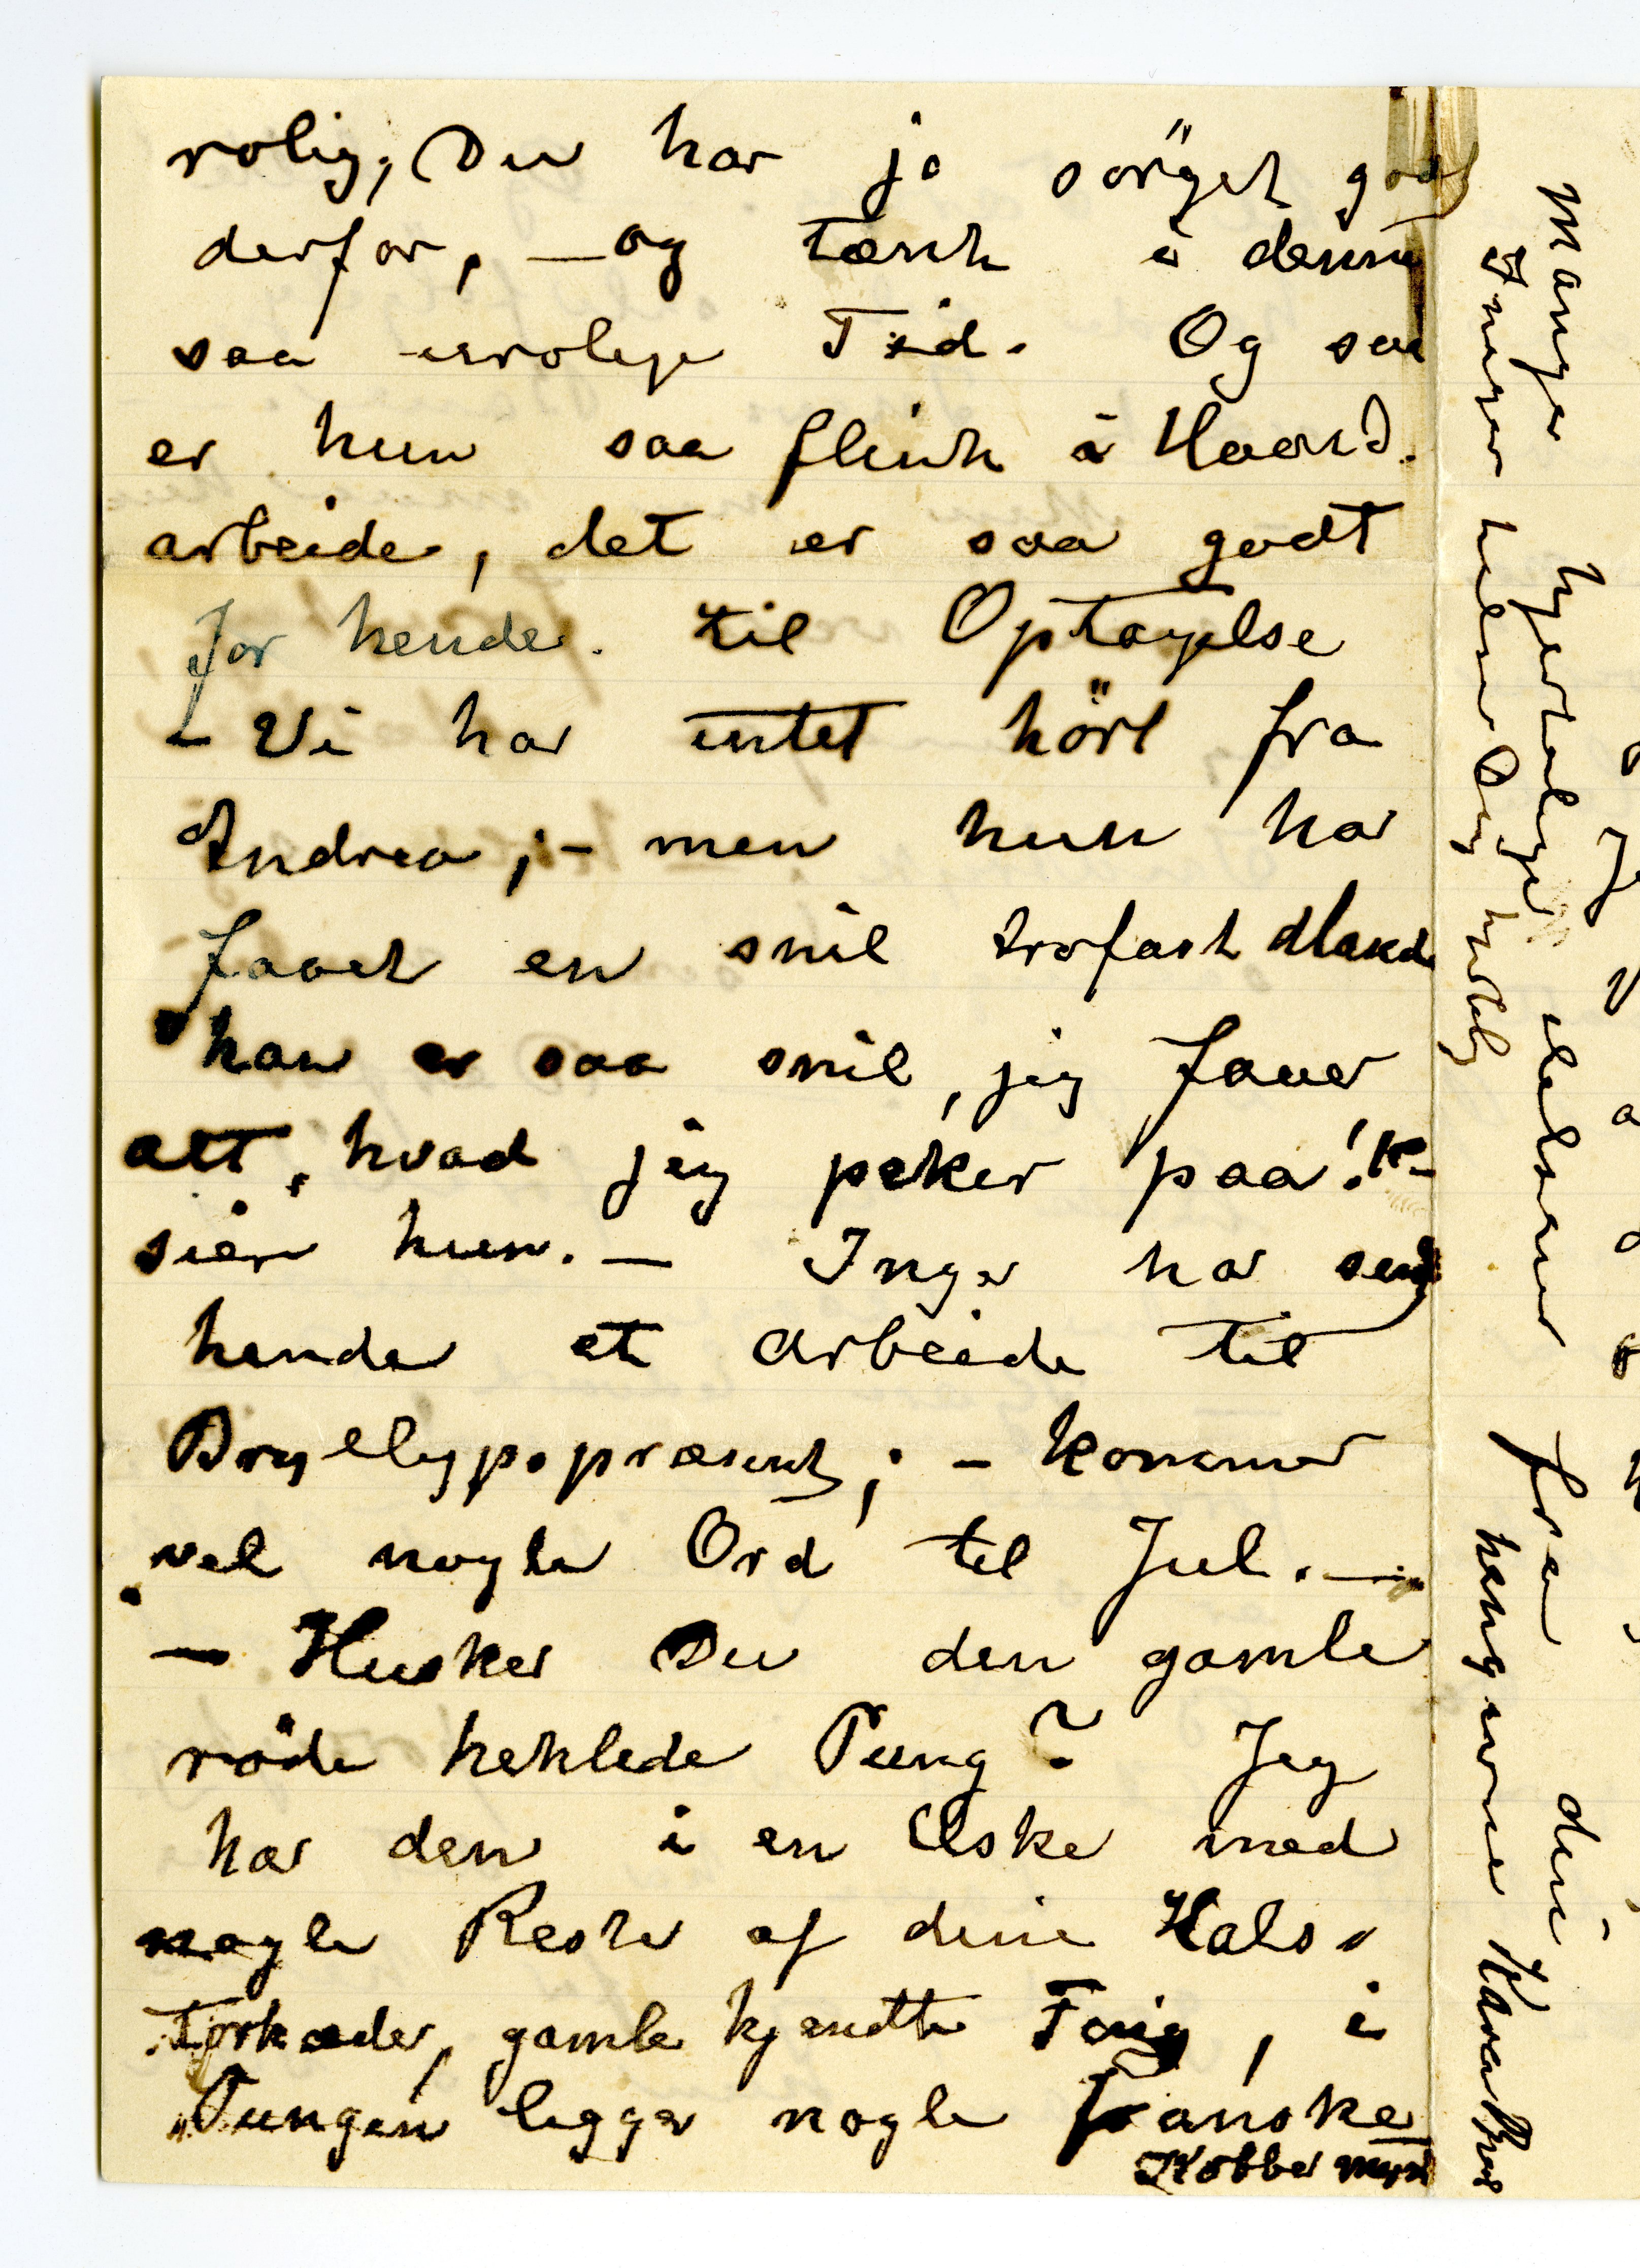 rolig, Du har jo sörget godt
derfor, — og tænk i denne
saa urolige Tid. Og saa
er hun saa flink i Haand-
arbeide, det er saa godt
for hende. til Optagelse
— Vi har intet hört fra
Andrea; — men hun har
faaet en snil trofast Mand
"han er saa snil, jeg faaer
alt, hvad jeg peker paa!"—
sier hun. — Inga har sendt
hende et arbeide til
Bryllupspræsent; — kommer
vel nogle Ord til Jul. —
— Husker Du den gamle
röde heklede Pung? Jeg
har den i en Æske med
nogle Rester af dine Hals-
törklæder, gamle kjendte Töig, i
Pungen ligger nogle franske
Kobber mynt
Mange hjertelige hilsener fra din
hengivne Kara
Inga hilser Dig hjertelig